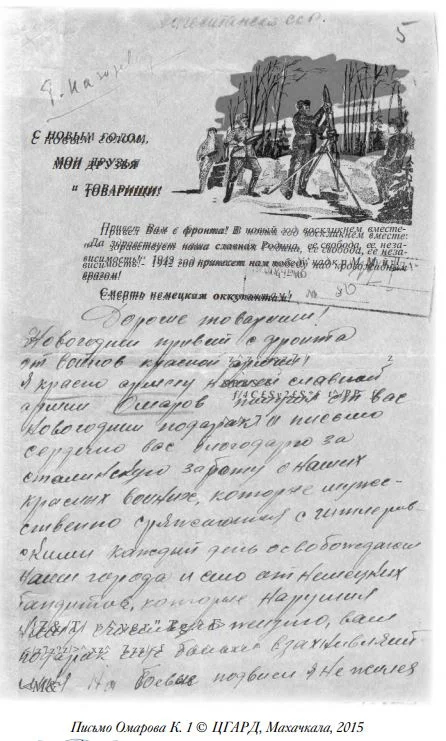 Дагестанская ССР.
5
С НОВЫМ ГОДОМ,
МОИ ДРУЗЬЯ
и ТОВАРИЩИ!
Привет Вам с фронта! В новый год воскликнем вместе:
„Да здравствует наша славная Родина, ее свобода, ее неза-
висимость!" 1942 год принесет нам победу над кровожадным
врагом!
Смерть немецким оккупантам!
№ 26
Дорогие товарищи!
Новогодний привет с фронта
от воинов красной армии!
Я красно армеец нашей славной
армии Омаров от вас
новогодний подарок и письмо
сердечно вас благодарю за
сталинскую заботу о наших
красных воинах, которые мужес-
ственно сражаются с гитлеров-
скими каждый день освобождаем
наши города и село от немецких
бандитов, которые нарушил
жизнь, ваш
подарок
на боевые подвиги я не жалея
Письмо Омарова К. 1 © ЦГАРД, Махачкала, 2015